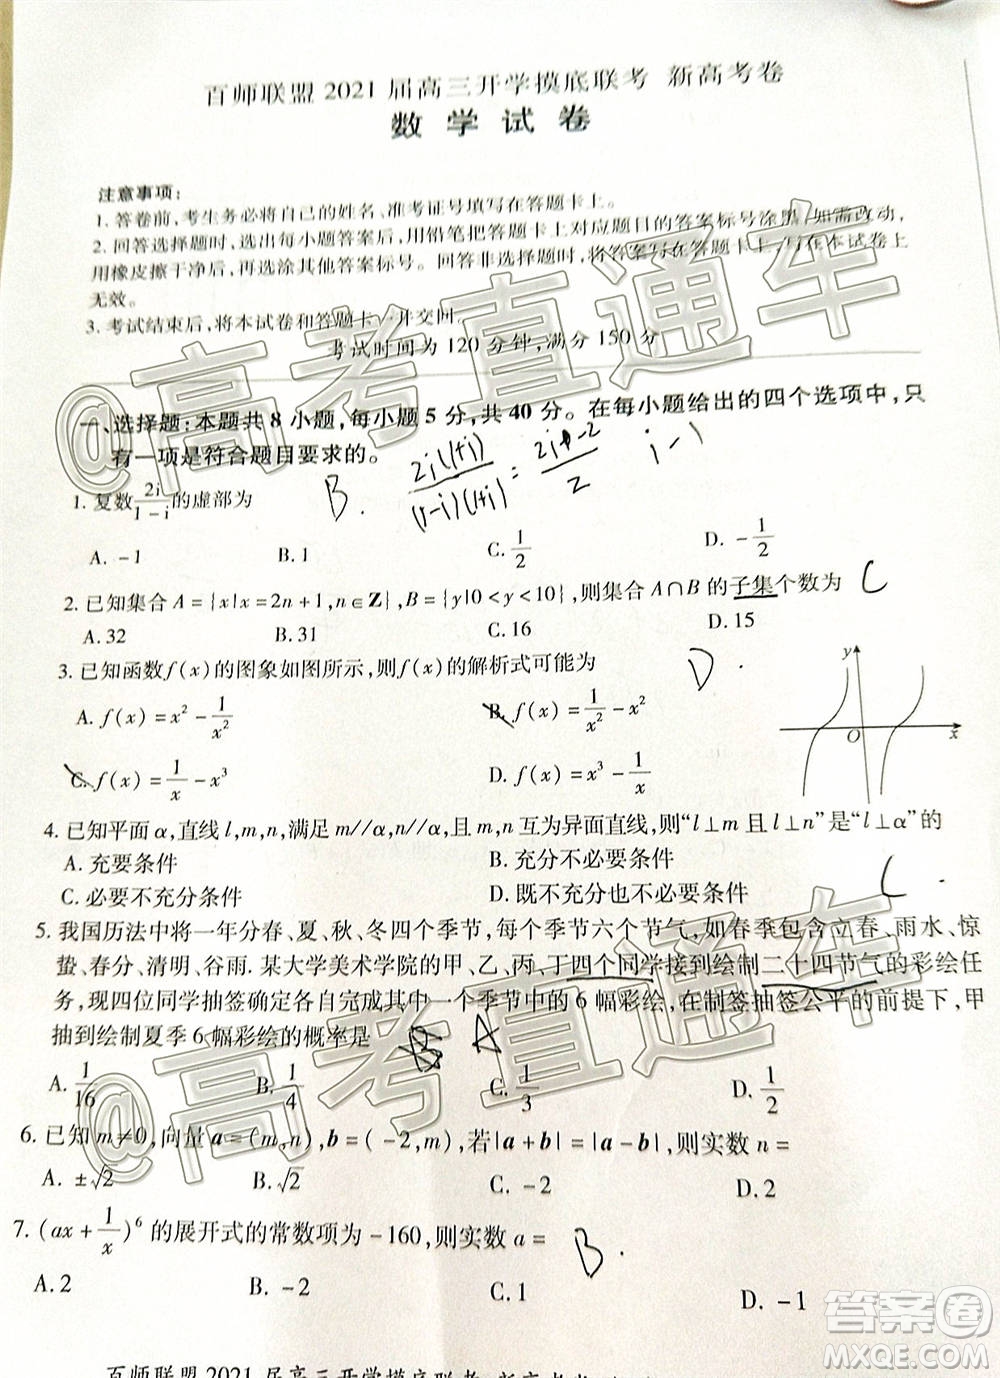 百师联盟 2021 届高三开学摸底联考 新高考卷
数 学 试 卷
注意事项：
1. 答卷前，考生务必将自己的姓名、准考证号填写在答题卡上。
2. 回答选择题时，选出每小题答案后，用铅笔把答题卡上对应题目的答案标号涂黑，如需改动，
用橡皮擦干净后，再选涂其他答案标号。回答非选择题时，将答案写在答题卡上，写在本试卷上
无效。
3. 考试结束后，将本试卷和答题卡一并交回。
考试时间为 120 分钟，满分 150 分
一、选择题：本题共 8 小题，每小题 5 分，共 40 分。在每小题给出的四个选项中，只
有一项是符合题目要求的。
2i(1+i)/(1-i)(1+i) = 2i+-2/2 i-1
1. 复数2i/1-i的虚部为 B.
A. -1 B. 1 C. 1/2 D. -1/2
2. 已知集合 A={x|x=2n+1,n∈Z},B={y|0<y<10},则集合 A∩B 的子集个数为 C
A. 32 B. 31 C. 16 D. 15
3. 已知函数 f(x)的图象如图所示，则 f(x)的解析式可能为 D.
A. f(x)=x²-1/x² B. f(x)=1/x²-x²
C. f(x)=1/x-x³ D. f(x)=x³-1/x
y
O x
4. 已知平面 α,直线 l,m,n,满足 m//α,n//α,且 m,n 互为异面直线,则“l⊥m 且 l⊥n”是“l⊥α”的
A. 充要条件 B. 充分不必要条件
C. 必要不充分条件 D. 既不充分也不必要条件 C.
5. 我国历法中将一年分春、夏、秋、冬四个季节，每个季节六个节气，如春季包含立春、雨水、惊
蛰、春分、清明、谷雨. 某大学美术学院的甲、乙、丙、丁四个同学接到绘制二十四节气的彩绘任
务，现四位同学抽签确定各自完成其中一个季节中的 6 幅彩绘，在制签抽签公平的前提下，甲
抽到绘制夏季 6 幅彩绘的概率是 B A
A. 1/16 B. 1/4 C. 1/3 D. 1/2
6. 已知 m≠0,向量 a=(m,n),b=(-2,m),若|a+b|=|a-b|,则实数 n=
A. ±√2 B. √2 C. -2 D. 2
7. (ax+1/x)⁶ 的展开式的常数项为 -160,则实数 a= B.
A. 2 B. -2 C. 1 D. -1
百师联盟 2021 届高三开学摸底联考
@高考直通车
@高考直通车
答案圈
MXQE.COM